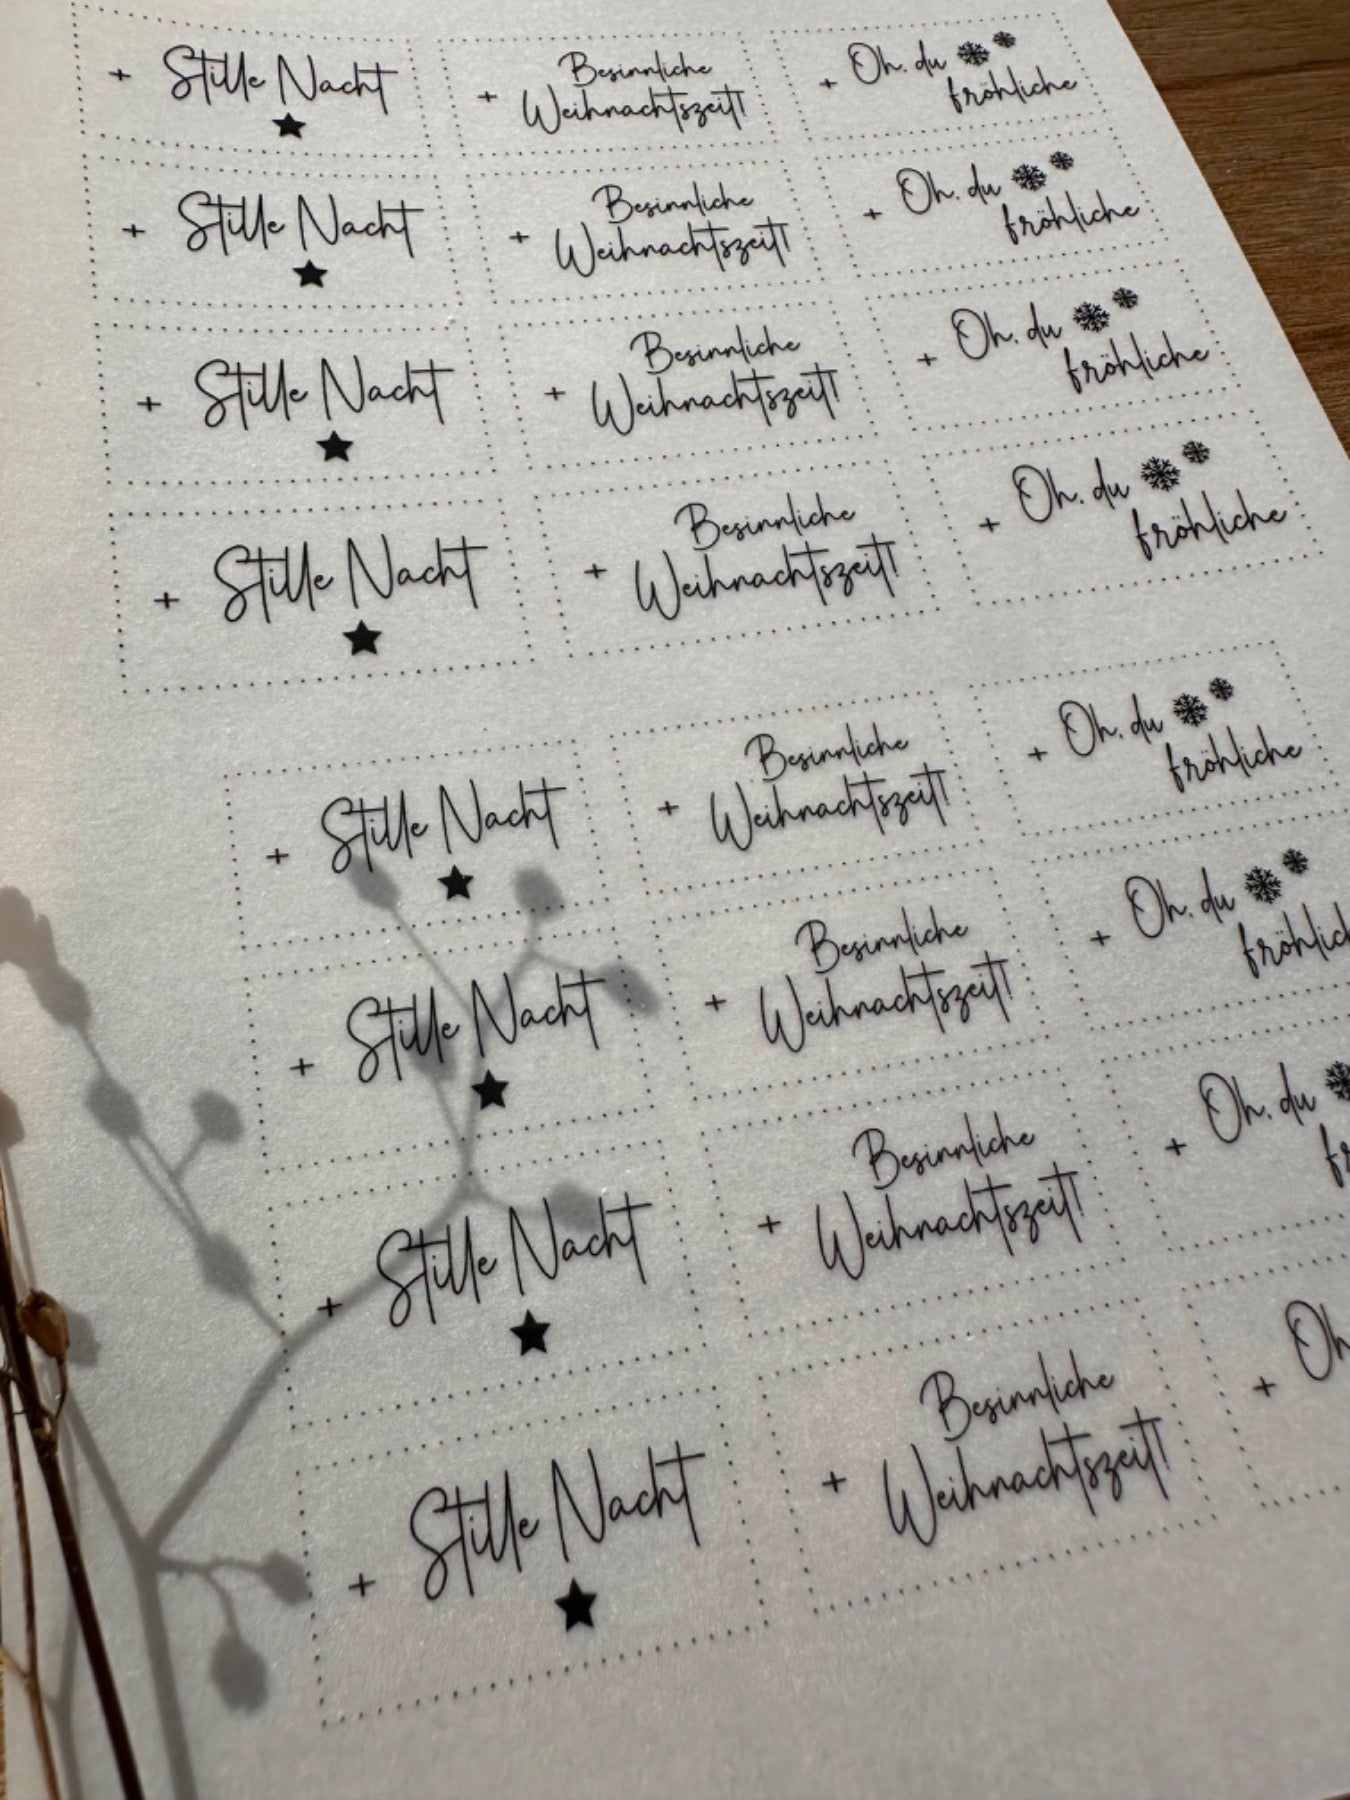 + Stille Nacht
+ Besinnliche
Weihnachtszeit!
+ Oh, du
fröhliche
+ Stille Nacht
+ Besinnliche
Weihnachtszeit!
+ Oh, du
fröhliche
+ Stille Nacht
+ Besinnliche
Weihnachtszeit!
+ Oh, du
fröhliche
+ Stille Nacht
+ Besinnliche
Weihnachtszeit!
+ Oh, du
fröhliche
+ Stille Nacht
+ Besinnliche
Weihnachtszeit!
+ Oh, du
fröhliche
+ Stille Nacht
+ Besinnliche
Weihnachtszeit!
+ Oh, du
fröhlich
+ Stille Nacht
+ Besinnliche
Weihnachtszeit!
+ Oh, du
fr
+ Stille Nacht
+ Besinnliche
Weihnachtszeit!
+ Oh